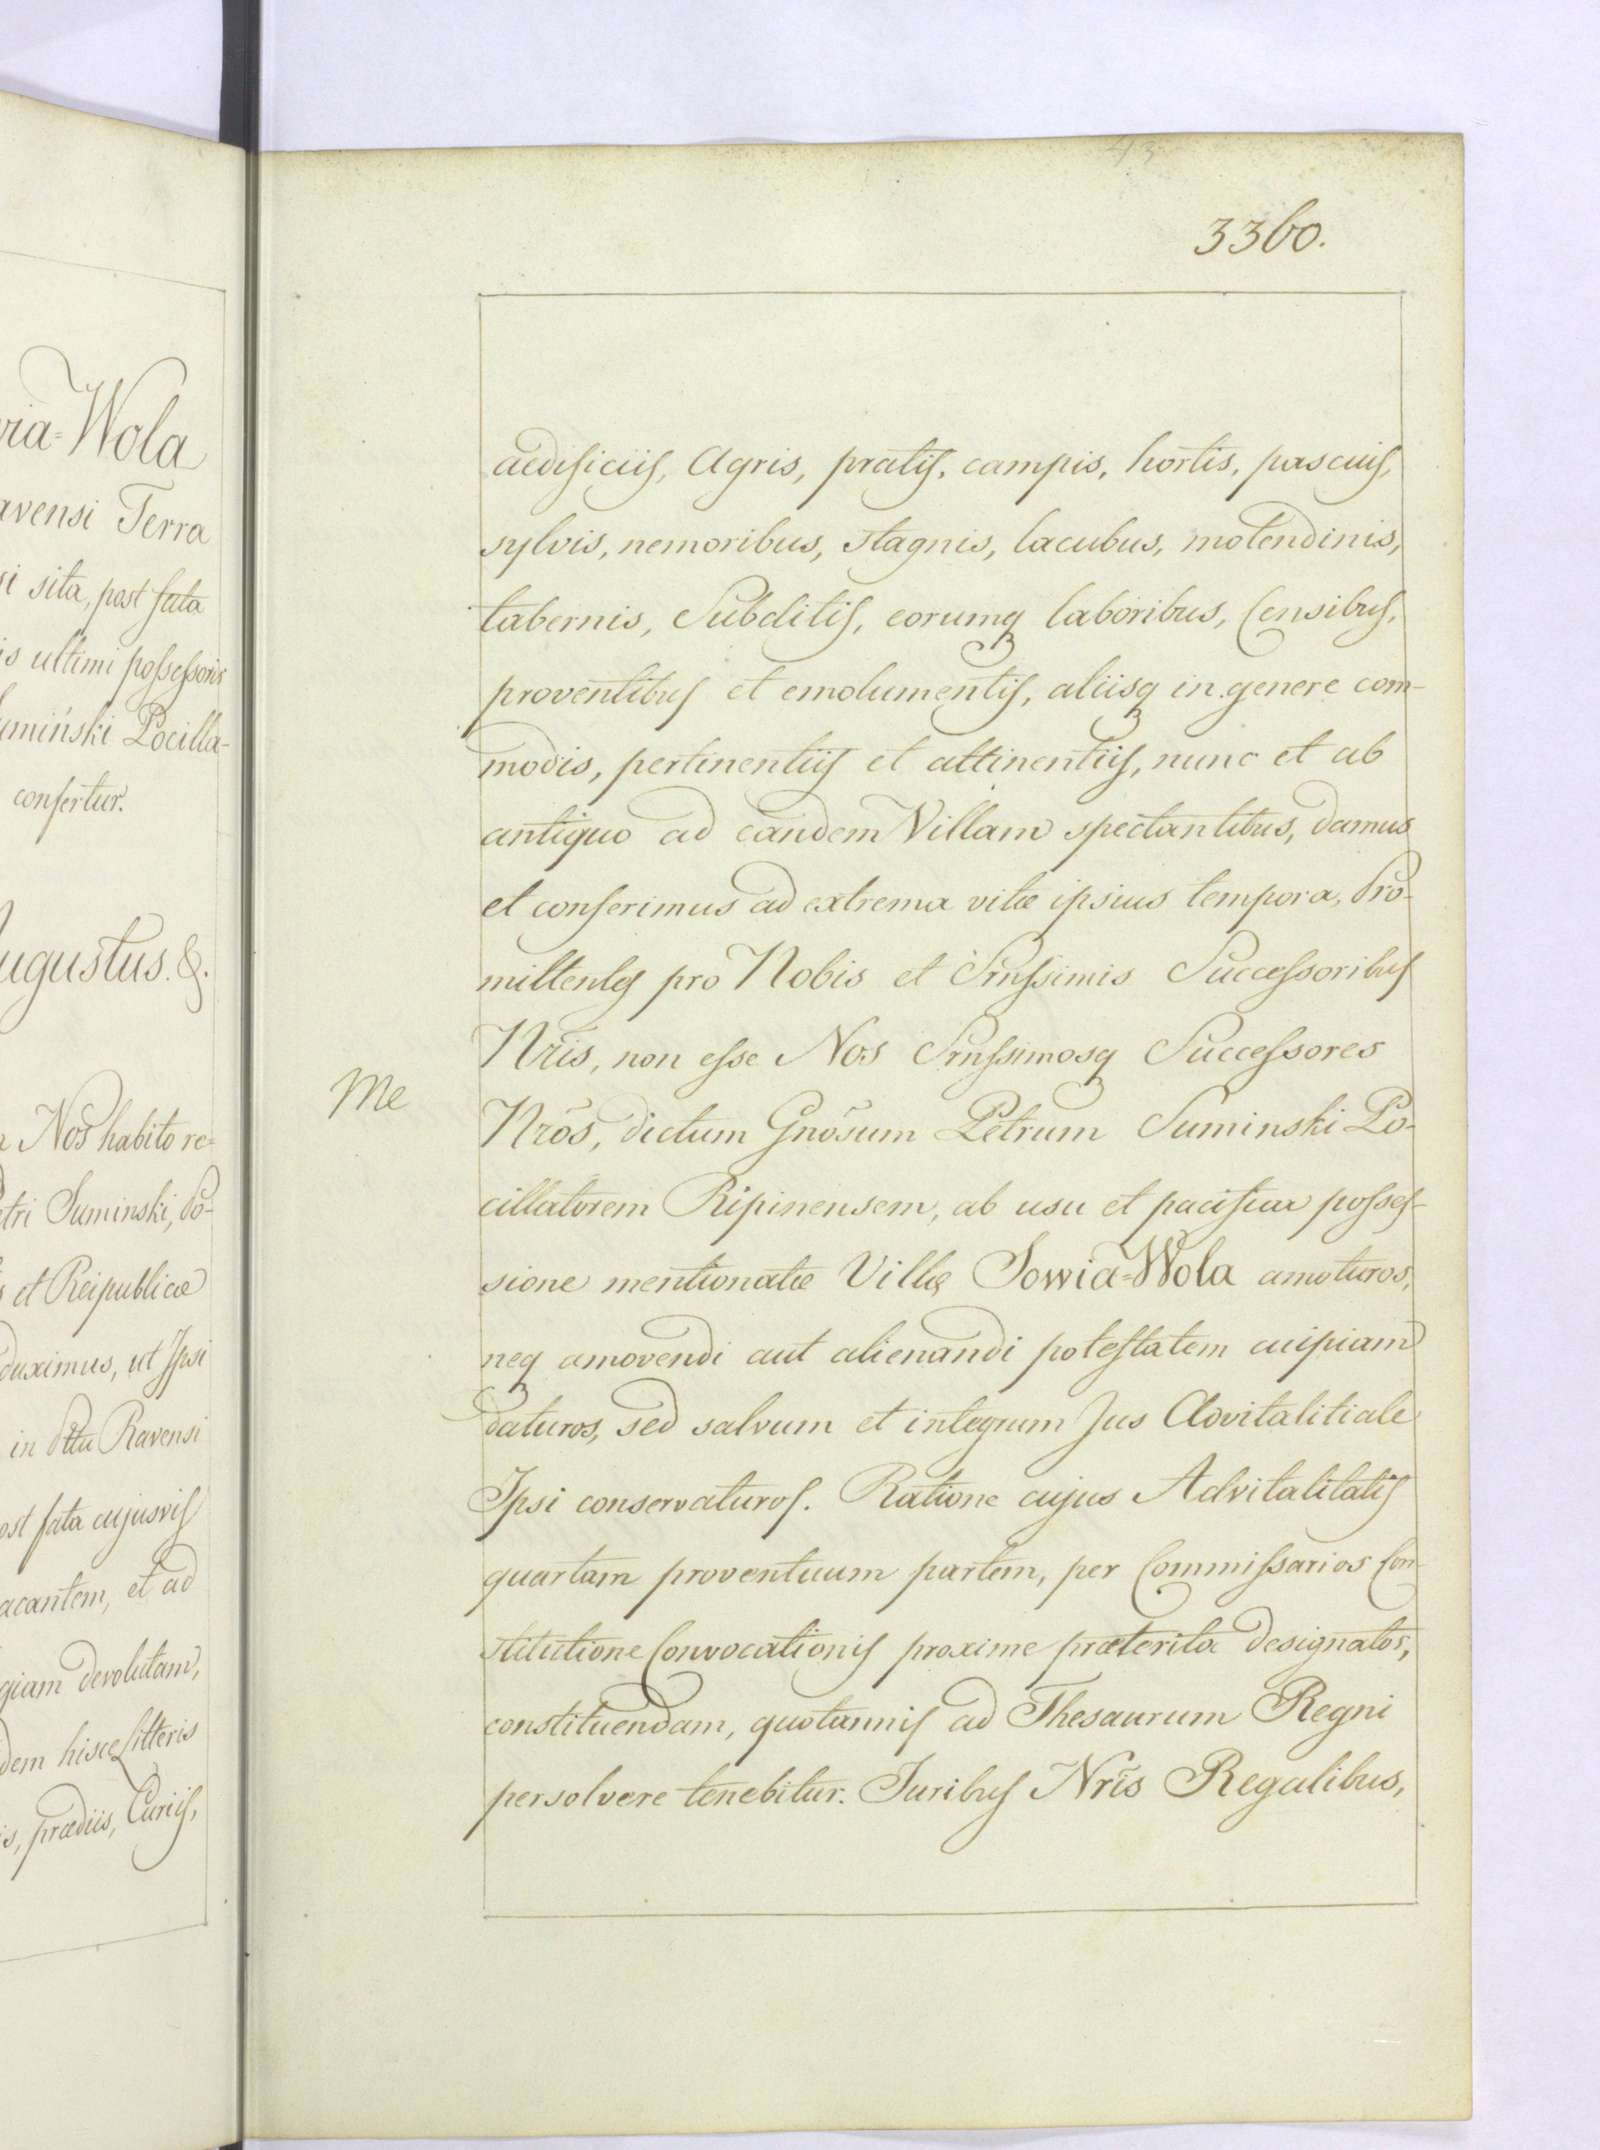 via-Wola
avensi Terra
si sita, post fata
is ultimi possessoris
umiński Pocilla-
confertur.
ugustus. &.
Nos habito re-
etri Suminski, Po-
s et Reipublicæ
duximus, ut Ipsi
in Pttu Ravensi
ost fata cujusvis
acantem, et ad
giam devolutam,
dem hisce Litteris
is, prædiis, Curiis,
43
3360.
aedificiis, Agris, pratis, campis, hortis, pascuis,
sylvis, nemoribus, stagnis, lacubus, molendinis,
tabernis, Subditis, eorumq laboribus, Censibus,
proventibus et emolumentis, aliisq in genere com-
modis, pertinentiis et attinentiis, nunc et ab
antiquo ad eandem Villam spectantibus, damus
et conferimus ad extrema vitæ ipsius tempora, Pro-
mittentes pro Nobis et Srnssimis Successoribus
Nris, non esse Nos Srnssimosq Successores
Me
Nros, dictum Gnosum Petrum Suminski Po-
cillatorem Ripinensem, ab usu et pacifica posses-
sione mentionatæ Villæ Sowia-Wola amoturos,
neq amovendi aut alienandi potestatem cuipiam
daturos, sed salvum et integrum Jus Advitalitiale
Ipsi conservaturos. Ratione cujus Advitalitatis
quartam proventuum partem, per Commissarios Con-
stitutione Convocationis proxime præteritæ designatos,
constituendam, quotannis ad Thesaurum Regni
persolvere tenebitur. Juribus Nris Regalibus,